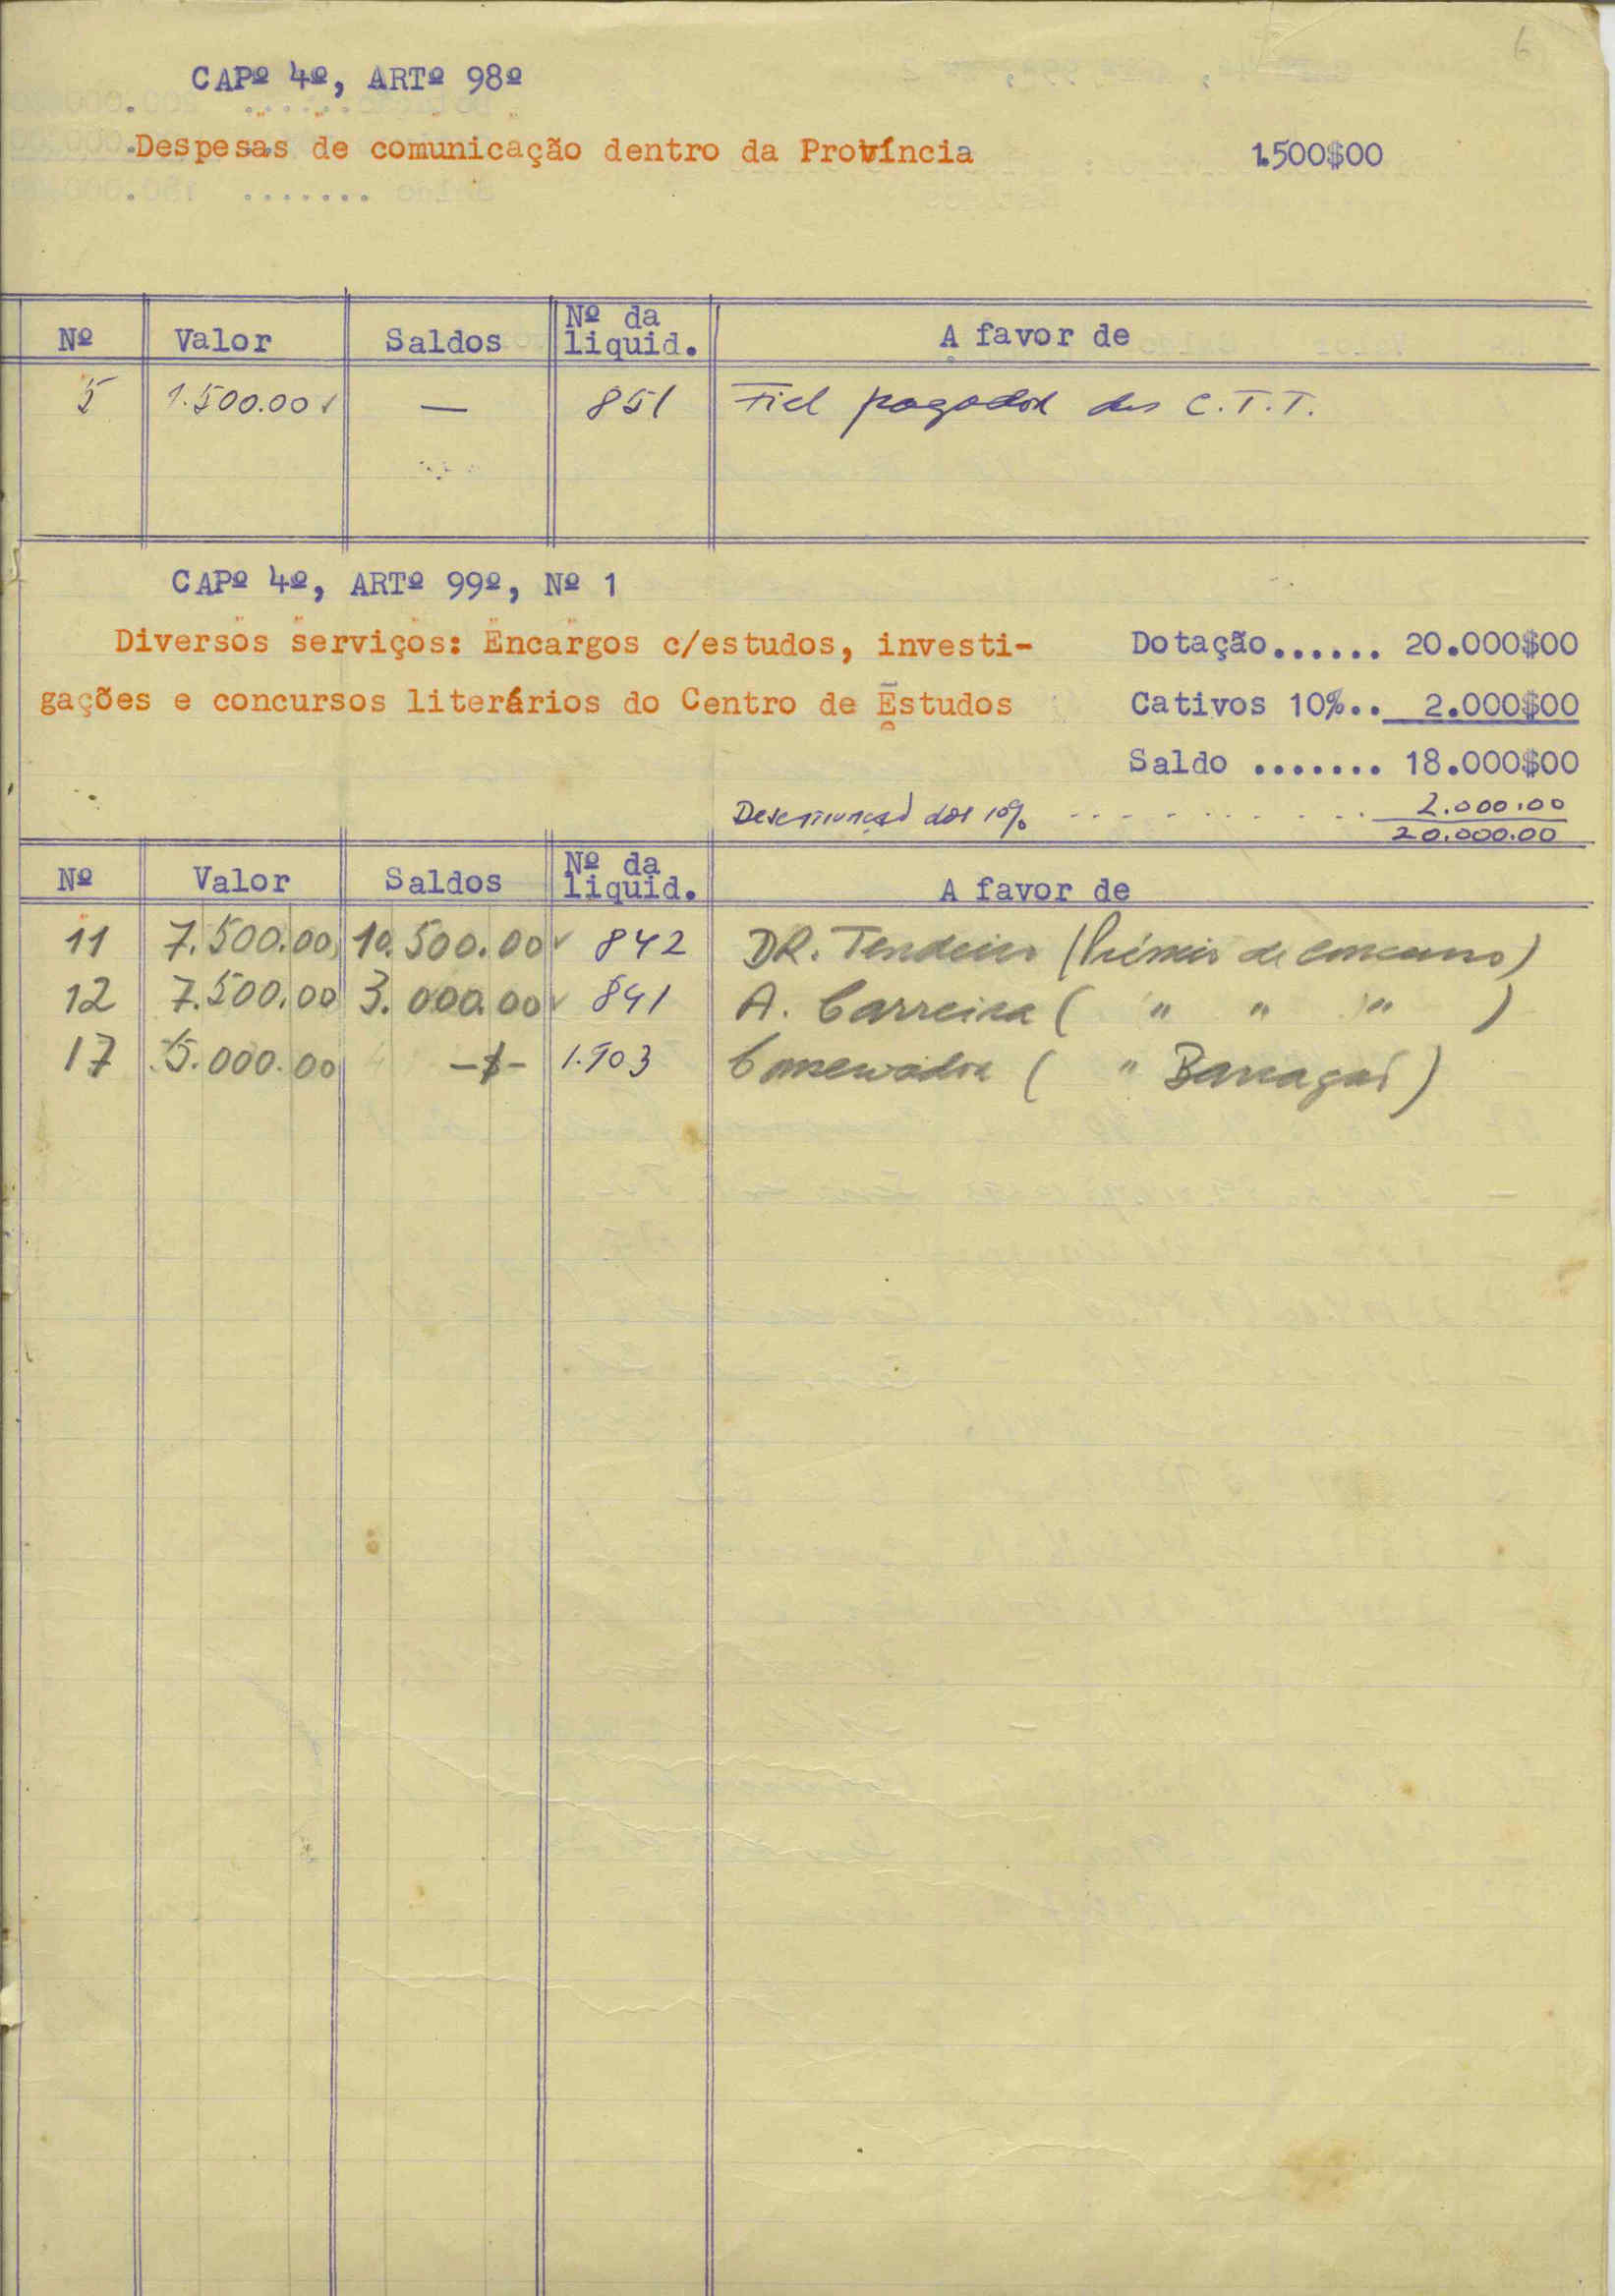 6
CAPº 4º, ARTº 98º
Despesas de comunicação dentro da Província 1.500$00
Nº Valor Saldos Nº da liquid. A favor de
5 1.500.00 — 851 Fiel pagador dos C.T.T.
CAPº 4º, ARTº 99º, Nº 1
Diversos serviços: Encargos c/estudos, investi- Dotação...... 20.000$00
gações e concursos literários do Centro de Estudos Cativos 10%.. 2.000$00
Saldo ....... 18.000$00
dos 10% 2.000.00
20.000.00
Nº Valor Saldos Nº da liquid. A favor de
11 7.500.00 10.500.00 842 DR. Tendeiro (Prémio de concurso)
12 7.500.00 3.000.00 841 A. Carreira ( " " " )
17 5.000.00 -$- 1.903 Conservador ( " )